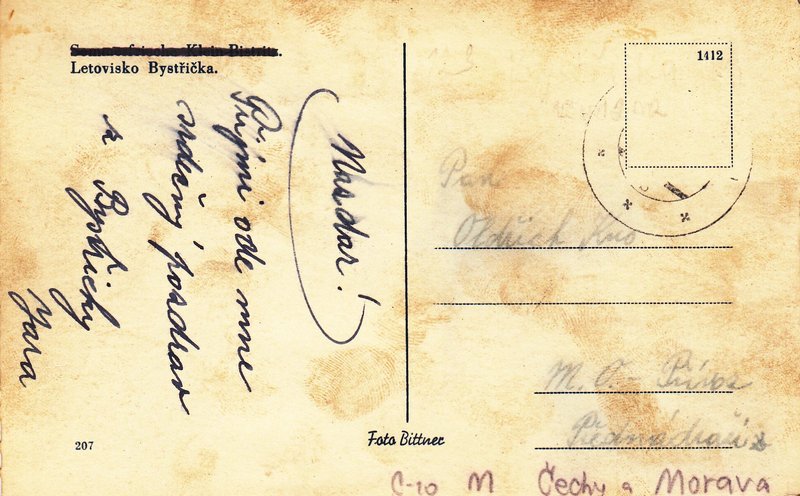 Sommerfrische Klein Bistritz.
Letovisko Bystřička.
1412
Nasdar!
Přijmi ode mne
srdečný pozdrav
z Bystřičky
Jara
Pan
Oldřich
M. O. –
207
Foto Bittner
C-10 M Čechy a Morava